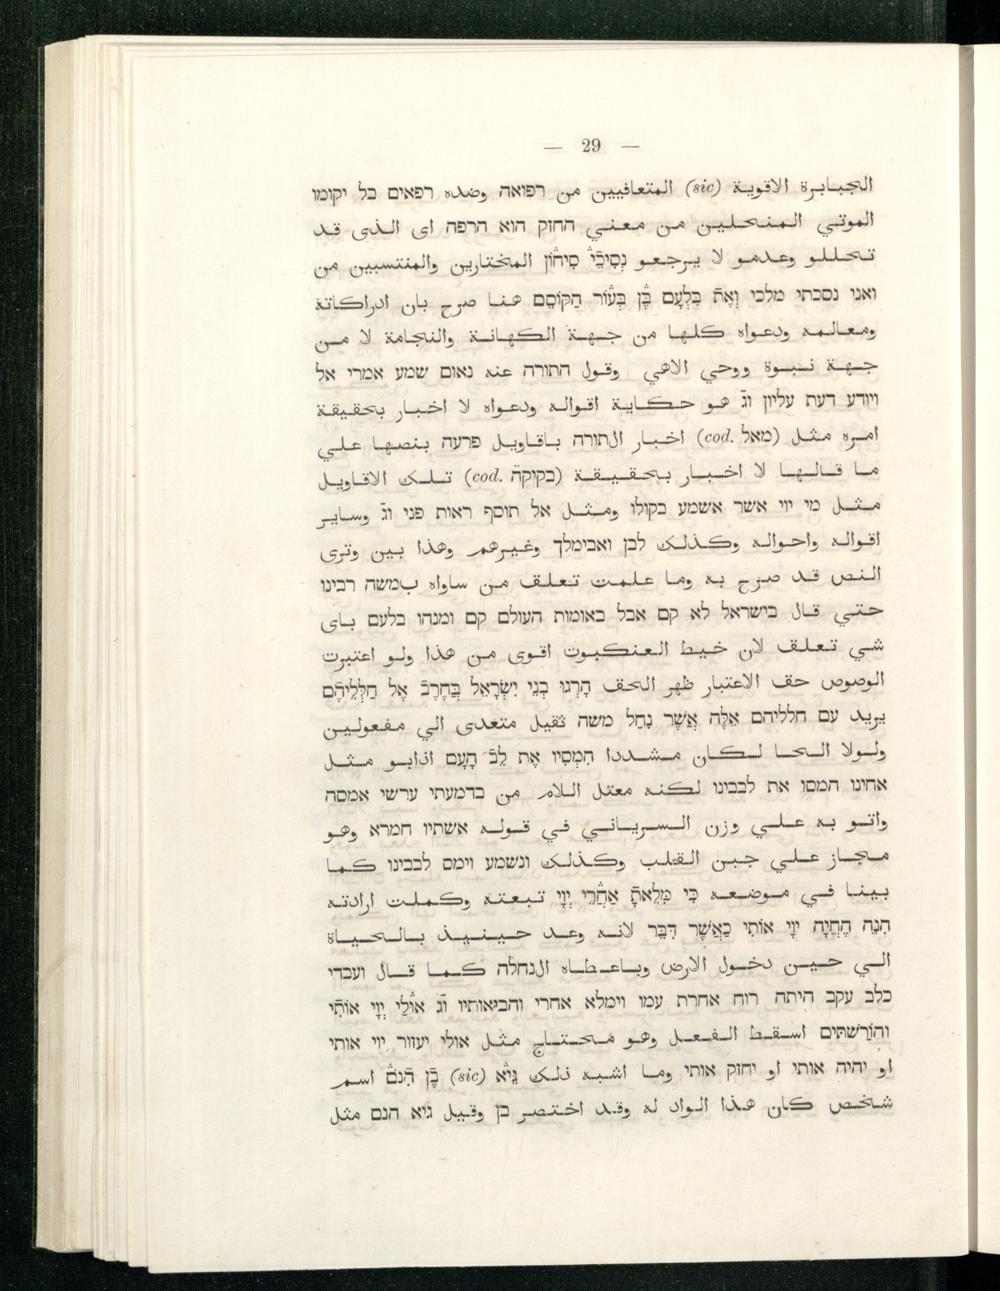 — 29 —
الجبابرة الاقوية (sic) المتعافيين من רפואה وضده רפאים בל יקומו
الموتي المنحلين من معني החזק הוא הרפה اى الذى قد
تحللو وعدمو لا يرجعو נְסִיכֵ֣י סִיח֔וֹן المختارين والمنتسبين من
ואני נסכתי מלכי וְאֶת בִּלְעָם בֶּן בְּעוֹר הַקּוֹסֵם هنا صرح بان ادراكاته
ومعالمه ودعواه كلها من جهة الكهانة والنجامة لا من
جهة نبوة ووحي الاهي وقول התורה عنه נאום שמע אמרי אל
ויודע דעת עליון וג̄ هو حكاية اقواله ودعواه لا اخبار بحقيقة
امره مثل (מאל .cod) اخبار التורה باقاويل פרעה بنصها علي
ما قالها لا اخبار بحقيقة (בקיקה̈ .cod) تلك الاقاويل
مثل מי יוי אשר אשמע בקולו ومثل אל תוסף ראות פני וג̄ وساير
اقواله واحواله وكذلك לבן ואבימלך وغيرهم وهذا بين وترى
النص قد صرح به وما علمت تعلف من ساواه بמשה רבינו
حتي قال בישראל לא קם אבל באומות העולם קם ומנהו בלעם باى
شي تعلف لان خيط العنكبوت اقوى من هذا ولو اعتبرت
الوصوص حق الاعتبار ظهر الحق הָרְגוּ בְנֵי יִשְׂרָאֵל בַּחֶרֶב אֶל חַלְלֵיהֶם
يريد עם חלליהם אֵלֶּה אֲשֶׁר נִחַל משה ثقيل متعدى الي مفعولين
ولولا الحا لكان مشددا הִמְסִיו אֶת לֵב הָעָם اذابو مثل
אחינו המסו את לבבינו لكنه معتل اللام من בדמעתי ערשי אמסה
واتو به علي وزن السرياني في قوله אשתיו חמרא وهو
مجاز علي جبن القلب وكذلك ונשמע וימס לבבינו كما
بينا في موضعه כִּי מִלֵּאתָ אַחֲרֵי יְוָי تبعته وكملت ارادته
הִנֵּה הֶחֱיָה יְוָי אוֹתִי כַּאֲשֶׁר דִּבֵּר لانه وعد حينيذ بالحياة
الي حين دخول الارض وباعطاه الנחלה كما قال ועבדי
כלב עקב היתה רוח אחרת עמו וימלא אחרי והביאותיו וג̄ אוּלַי יְוָי אוֹתִי
וְהוֹרַשְׁתִּים اسقط الفعل وهو محتاج مثل אולי יעזור יוי אותי
او יהיה אותי او יחזק אותי وما اشبه ذلك גֵּיא (sic) בֶּן הִנֹּם اسم
شخص كان هذا الواد له وقد اختصر בן وقيل גיא הנם مثل